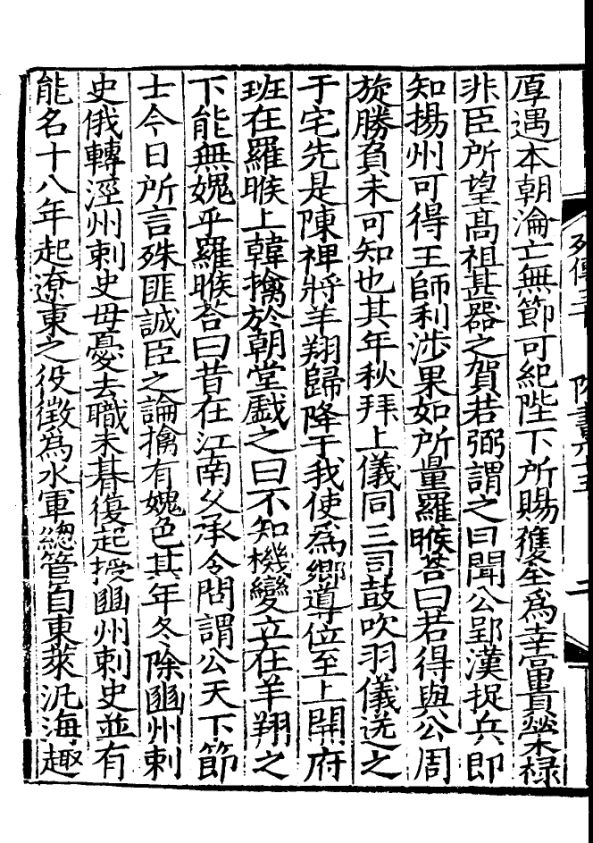 厚遇本朝淪亡無節可紀陛下所賜獲全爲幸富貴榮禄
非臣所望髙祖甚器之賀若弼謂之曰聞公郢漢捉兵即
知揚州可得王師利涉果如所量羅睺荅曰若得與公周
旋勝負未可知也其年秋拜上儀同三司鼓吹羽儀送之
于宅先是陳裨將羊翔歸降于我使爲鄉導位至上開府
班在羅睺上韓擒於朝堂戲之曰不知機變立在羊翔之
下能無媿乎羅睺荅曰昔在江南久承令問謂公天下節
士今日所言殊匪誠臣之論擒有媿色其年冬除豳州刺
史俄轉涇州刺史母憂去職未朞復起授豳州刺史並有
能名十八年起遼東之役徵爲水軍總管自東萊汎海趣